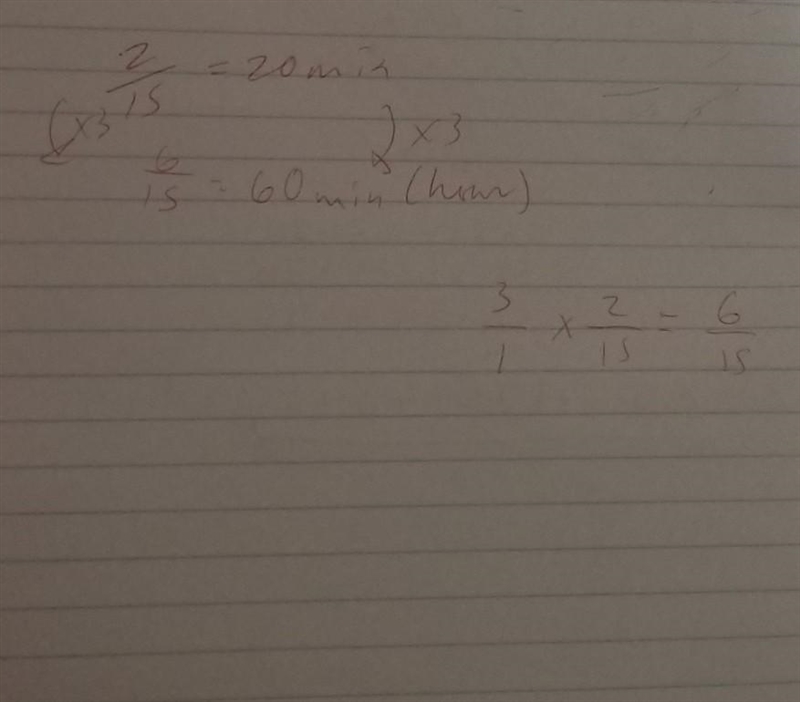 2/15 = 20min
x3 x3
6/15 = 60min (hour)
3/1 x 2/15 = 6/15